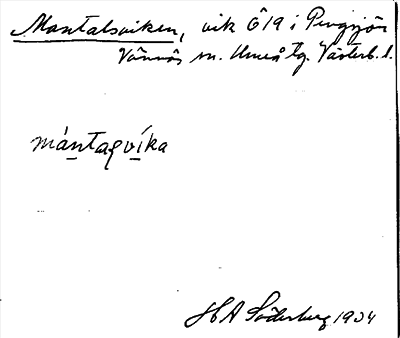 Mantalsviken, vik Ö19 i Pengsjön
Vännäs sn. Umeå tg. Västerb. l.
mántaqvíka
HA Söderberg 1934